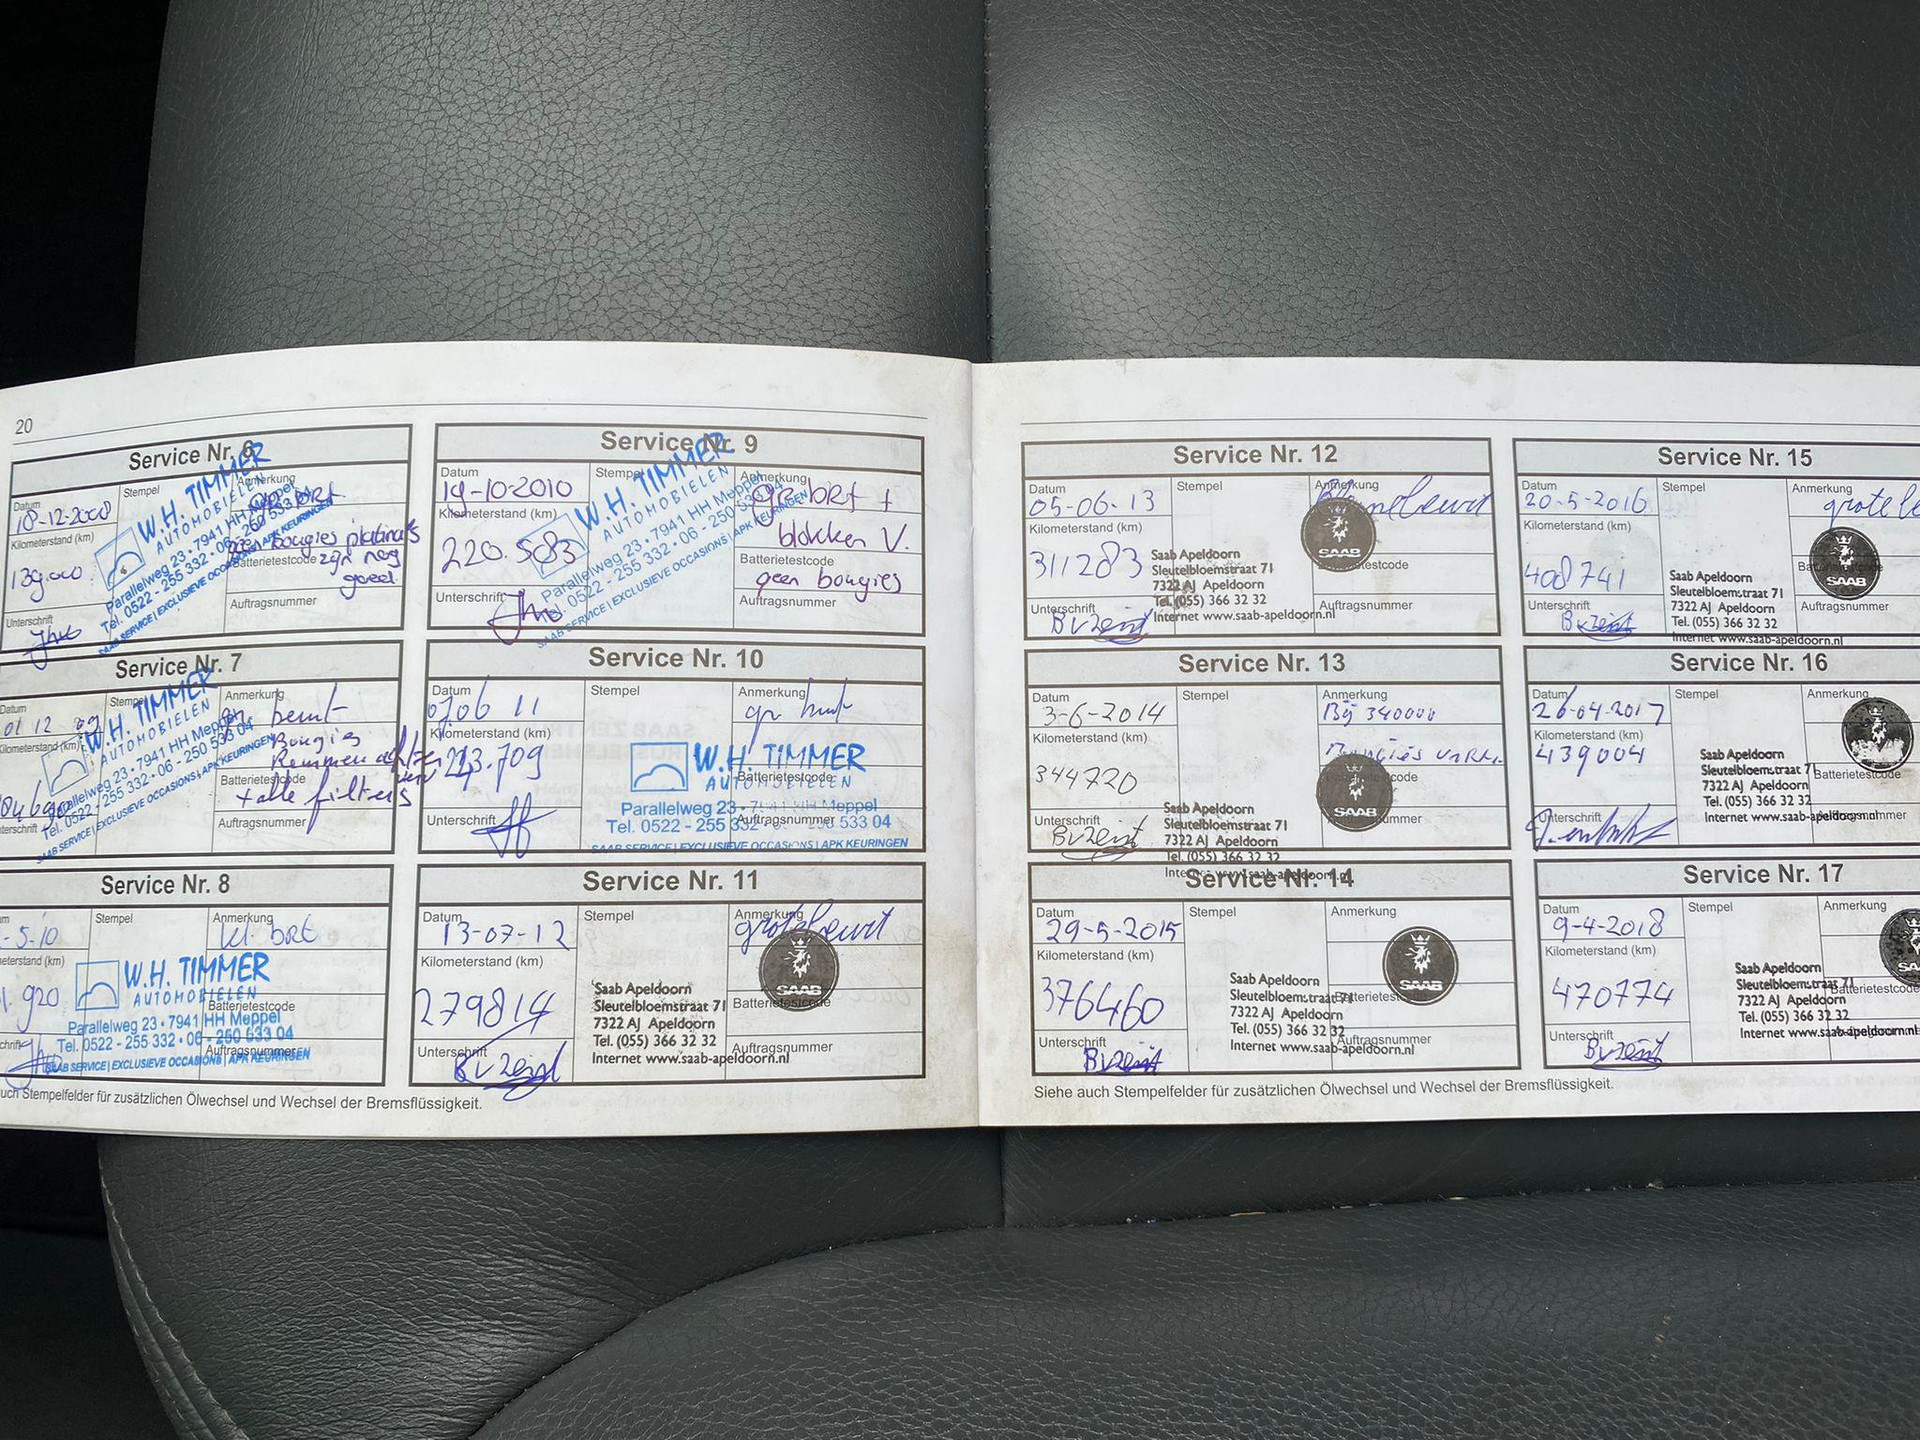 20
Service Nr. 6
Datum
Stempel
Anmerkung
18-12-2008
Kilometerstand (km)
139.000
Unterschrift
W.H. TIMMER
AUTOMOBIELEN
Parallelweg 23 • 7941 HH Meppel
Tel. 0522 - 255 332 • 06 - 250 533 04
SAAB SERVICE | EXCLUSIEVE OCCASIONS | APK KEURINGEN
bougies platina's
zijn nog
goed.
Batterietestcode
Auftragsnummer
Service Nr. 7
Datum
Stempel
Anmerkung
01 12 09
Kilometerstand (km)
W.H. TIMMER
AUTOMOBIELEN
Parallelweg 23 • 7941 HH Meppel
Tel. 0522 - 255 332 • 06 - 250 533 04
SAAB SERVICE | EXCLUSIEVE OCCASIONS | APK KEURINGEN
gr beurt
Bougies
Remmen achter
Batterietestcode
+ alle filters
Auftragsnummer
Service Nr. 8
Stempel
Anmerkung
-5-10
kl. brt
920
W.H. TIMMER
AUTOMOBIELEN
Batterietestcode
Parallelweg 23 • 7941 HH Meppel
Tel. 0522 - 255 332 • 06 - 250 533 04
Auftragsnummer
SAAB SERVICE | EXCLUSIEVE OCCASIONS | APK KEURINGEN
Stempelfelder für zusätzlichen Ölwechsel und Wechsel der Bremsflüssigkeit.
Service Nr. 9
Datum
Stempel
Anmerkung
19-10-2010
gr brt +
Kilometerstand (km)
blokken V.
220.583
Batterietestcode
geen bougies
Unterschrift
Auftragsnummer
W.H. TIMMER
AUTOMOBIELEN
Parallelweg 23 • 7941 HH Meppel
Tel. 0522 - 255 332 • 06 - 250 533 04
SAAB SERVICE | EXCLUSIEVE OCCASIONS | APK KEURINGEN
Service Nr. 10
Datum
Stempel
Anmerkung
07.06 11
Kilometerstand (km)
W.H. TIMMER
AUTOMOBIELEN
Batterietestcode
Parallelweg 23 • 7941 HH Meppel
Unterschrift
Auftragsnummer
Tel. 0522 - 255 332 • 06 - 250 533 04
SAAB SERVICE | EXCLUSIEVE OCCASIONS | APK KEURINGEN
Service Nr. 11
Datum
Stempel
Anmerkung
13-07-12
Kilometerstand (km)
279814
SAAB
Batterietestcode
Saab Apeldoorn
Sleutelbloemstraat 71
7322 AJ Apeldoorn
Tel. (055) 366 32 32
Internet www.saab-apeldoorn.nl
Unterschrift
Auftragsnummer
Bvzeist
Service Nr. 12
Datum
Stempel
Anmerkung
05-06-13
Kilometerstand (km)
311283
SAAB
Saab Apeldoorn
Sleutelbloemstraat 71
7322 AJ Apeldoorn
Tel. (055) 366 32 32
Internet www.saab-apeldoorn.nl
Unterschrift
Auftragsnummer
Bvzeist
Service Nr. 13
Datum
Stempel
Anmerkung
3-6-2014
Bij 340000
Kilometerstand (km)
Bougies
344720
SAAB
Saab Apeldoorn
Sleutelbloemstraat 71
7322 AJ Apeldoorn
Tel. (055) 366 32 32
Internet www.saab-apeldoorn.nl
Unterschrift
Auftragsnummer
Bvzeist
Service Nr. 14
Datum
Stempel
Anmerkung
29-5-2015
Kilometerstand (km)
376460
SAAB
Saab Apeldoorn
Sleutelbloemstraat 71
Batterietestcode
7322 AJ Apeldoorn
Tel. (055) 366 32 32
Internet www.saab-apeldoorn.nl
Unterschrift
Auftragsnummer
Bvzeist
Siehe auch Stempelfelder für zusätzlichen Ölwechsel und Wechsel der Bremsflüssigkeit.
Service Nr. 15
Datum
Stempel
Anmerkung
20-5-2016
grote be
Kilometerstand (km)
408741
SAAB
Saab Apeldoorn
Sleutelbloemstraat 71
7322 AJ Apeldoorn
Tel. (055) 366 32 32
Internet www.saab-apeldoorn.nl
Unterschrift
Auftragsnummer
Bvzeist
Service Nr. 16
Datum
Stempel
Anmerkung
26-04-2017
Kilometerstand (km)
439004
Saab Apeldoorn
Sleutelbloemstraat 71
Batterietestcode
7322 AJ Apeldoorn
Tel. (055) 366 32 32
Internet www.saab-apeldoorn.nl
Unterschrift
Service Nr. 17
Datum
Stempel
Anmerkung
9-4-2018
Kilometerstand (km)
470774
Saab Apeldoorn
Sleutelbloemstraat 71
Batterietestcode
7322 AJ Apeldoorn
Tel. (055) 366 32 32
Internet www.saab-apeldoorn.nl
Unterschrift
Bvzeist